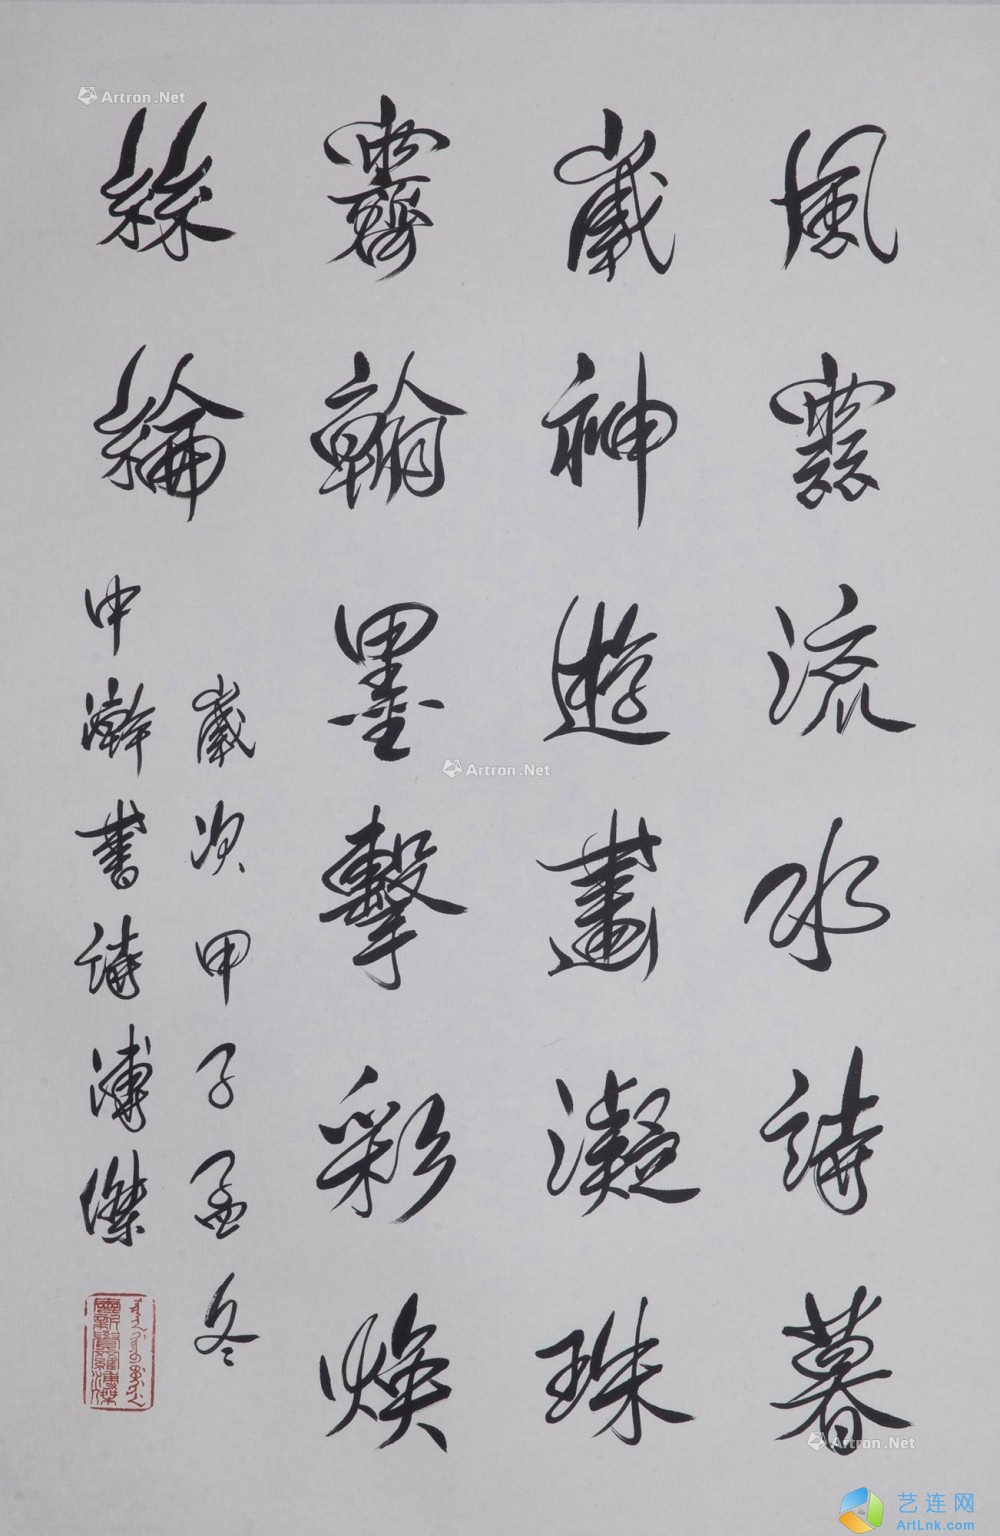 風流水詩暮
歲神遊畫凝珠
霽翰墨擊彩煥
絲綸
歲次甲子孟冬
中瀚書詩溥傑
愛新覺羅溥傑
Artron.Net
Artron.Net
Artron.Net
艺连网
ArtLnk.com